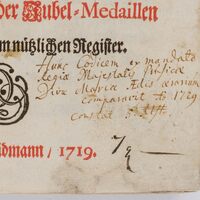 der Jubel-Medaillen
m nützlichen Register.
Hunc Codicem ex mandato
Regiæ Majestatis Prussicæ
Divæ Mariæ Ædis ærarium
comparavit A. 1729
constat 3
dmann / 1719.